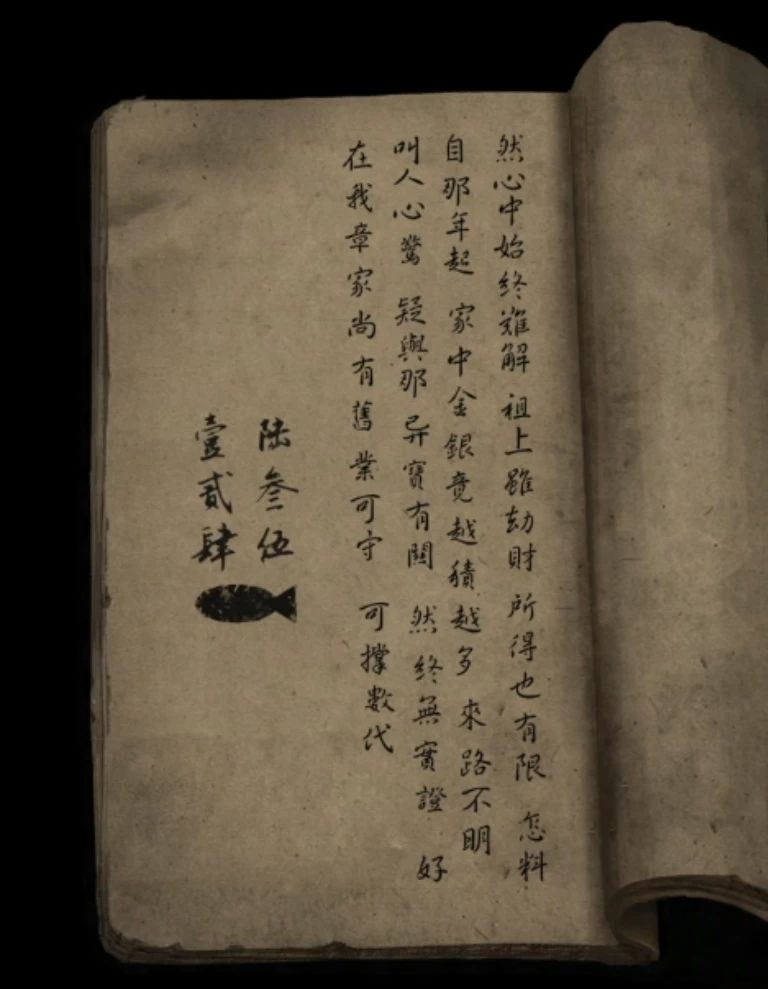 然心中始終難解 祖上雖劫財 所得也有限 怎料
自那年起 家中金銀竟越積越多 來路不明
叫人心驚 疑與那异寶有關 然終無實證 好
在我章家尚有舊業可守 可撐數代
陆叁伍
壹貳肆